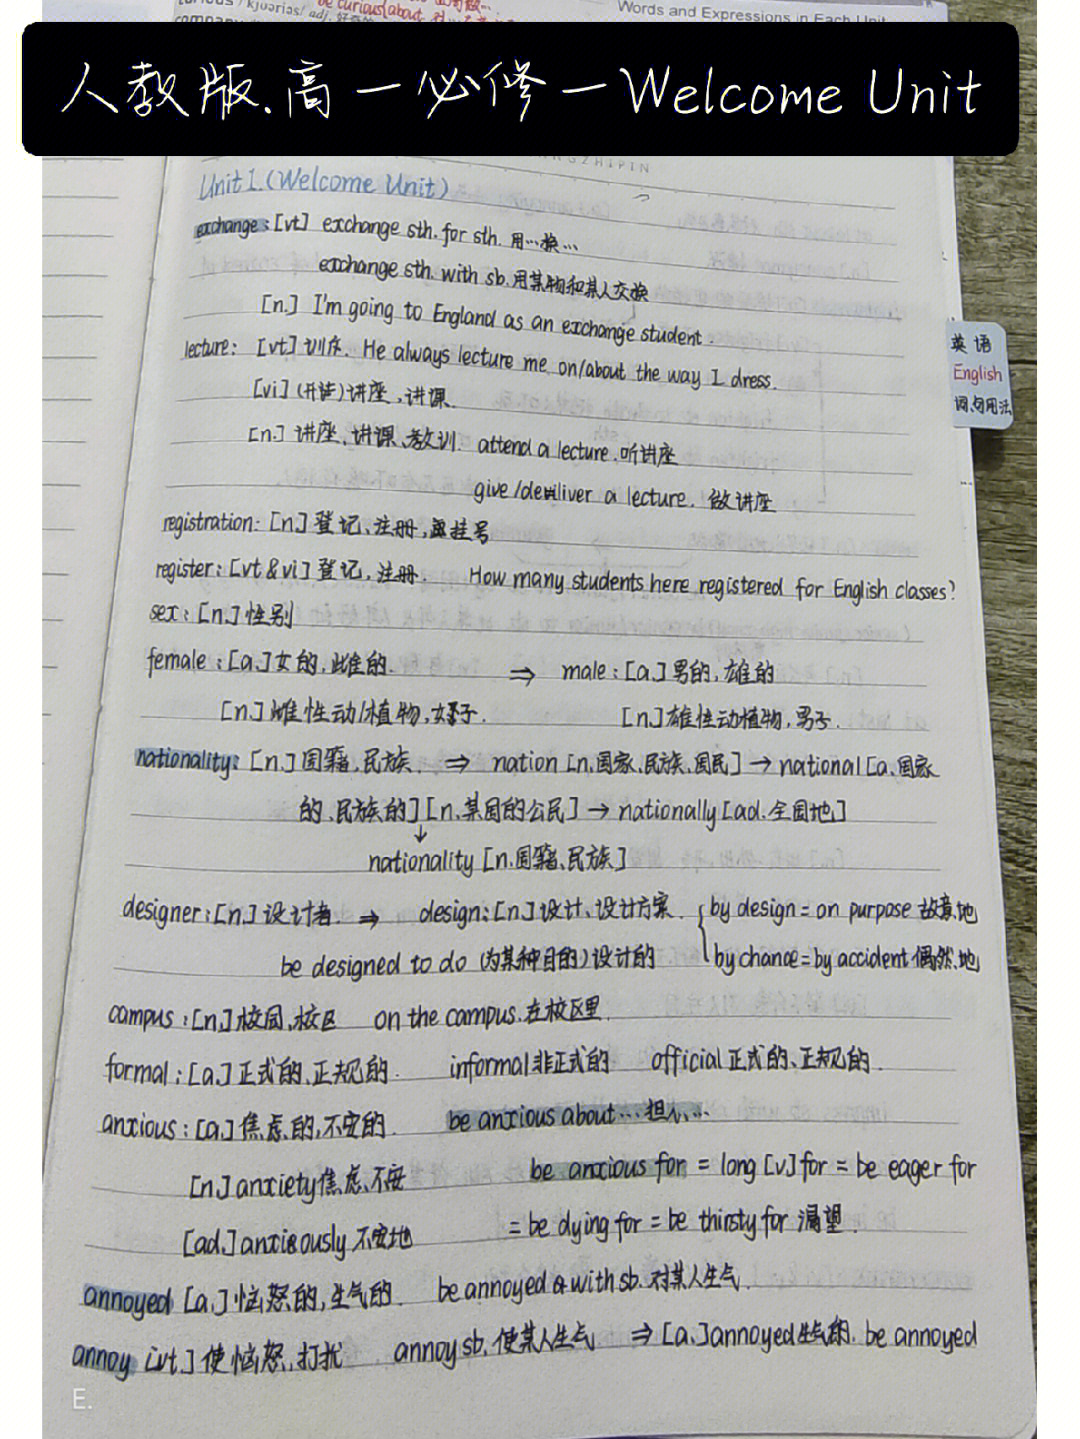 curious /ˈkjʊəriəs/ adj. 好奇的
Words and Expressions in Each Unit
人教版.高一必修一Welcome Unit
Unit 1.(Welcome Unit)
exchange:[vt] exchange sth. for sth. 用…换…
exchange sth. with sb.用某物和某人交换
[n.] I'm going to England as an exchange student.
lecture: [vt]训斥. He always lecture me on/about the way I dress.
[vi](开设)讲座,讲课.
[n.] 讲座、讲课、教训. attend a lecture.听讲座
give/deliver a lecture. 做讲座
registration:[n.]登记、注册,挂号
register:[vt&vi]登记,注册. How many students here registered for English classes?
sex:[n.]性别
female:[a.]女的,雌的. ⇒ male:[a.]男的,雄的
[n.]雌性动/植物,女子. [n.]雄性动植物,男子.
nationality:[n.]国籍,民族. ⇒ nation[n.国家、民族、国民]→national[a.国家
的、民族的][n.某国的公民]→nationally[ad.全国地]
↓
nationality[n.国籍、民族]
designer:[n.]设计者. ⇒ design:[n]设计、设计方案. by design=on purpose故意地
be designed to do (为某种目的)设计的 by chance=by accident偶然地
campus:[n.]校园、校区 on the campus.在校区里.
formal:[a.]正式的、正规的. informal非正式的 official正式的、正规的.
anxious:[a.]焦虑的,不安的. be anxious about…担心…
[n.]anxiety焦虑、不安 be anxious for = long[v]for = be eager for
[ad.]anxiously不安地 = be dying for = be thirsty for 渴望.
annoyed [a.]恼怒的,生气的. be annoyed with sb.对某人生气.
annoy [vt.]使恼怒,打扰 annoy sb.使某人生气 ⇒ [a.]annoyed生气的. be annoyed
英语
English
词、句用法
E.